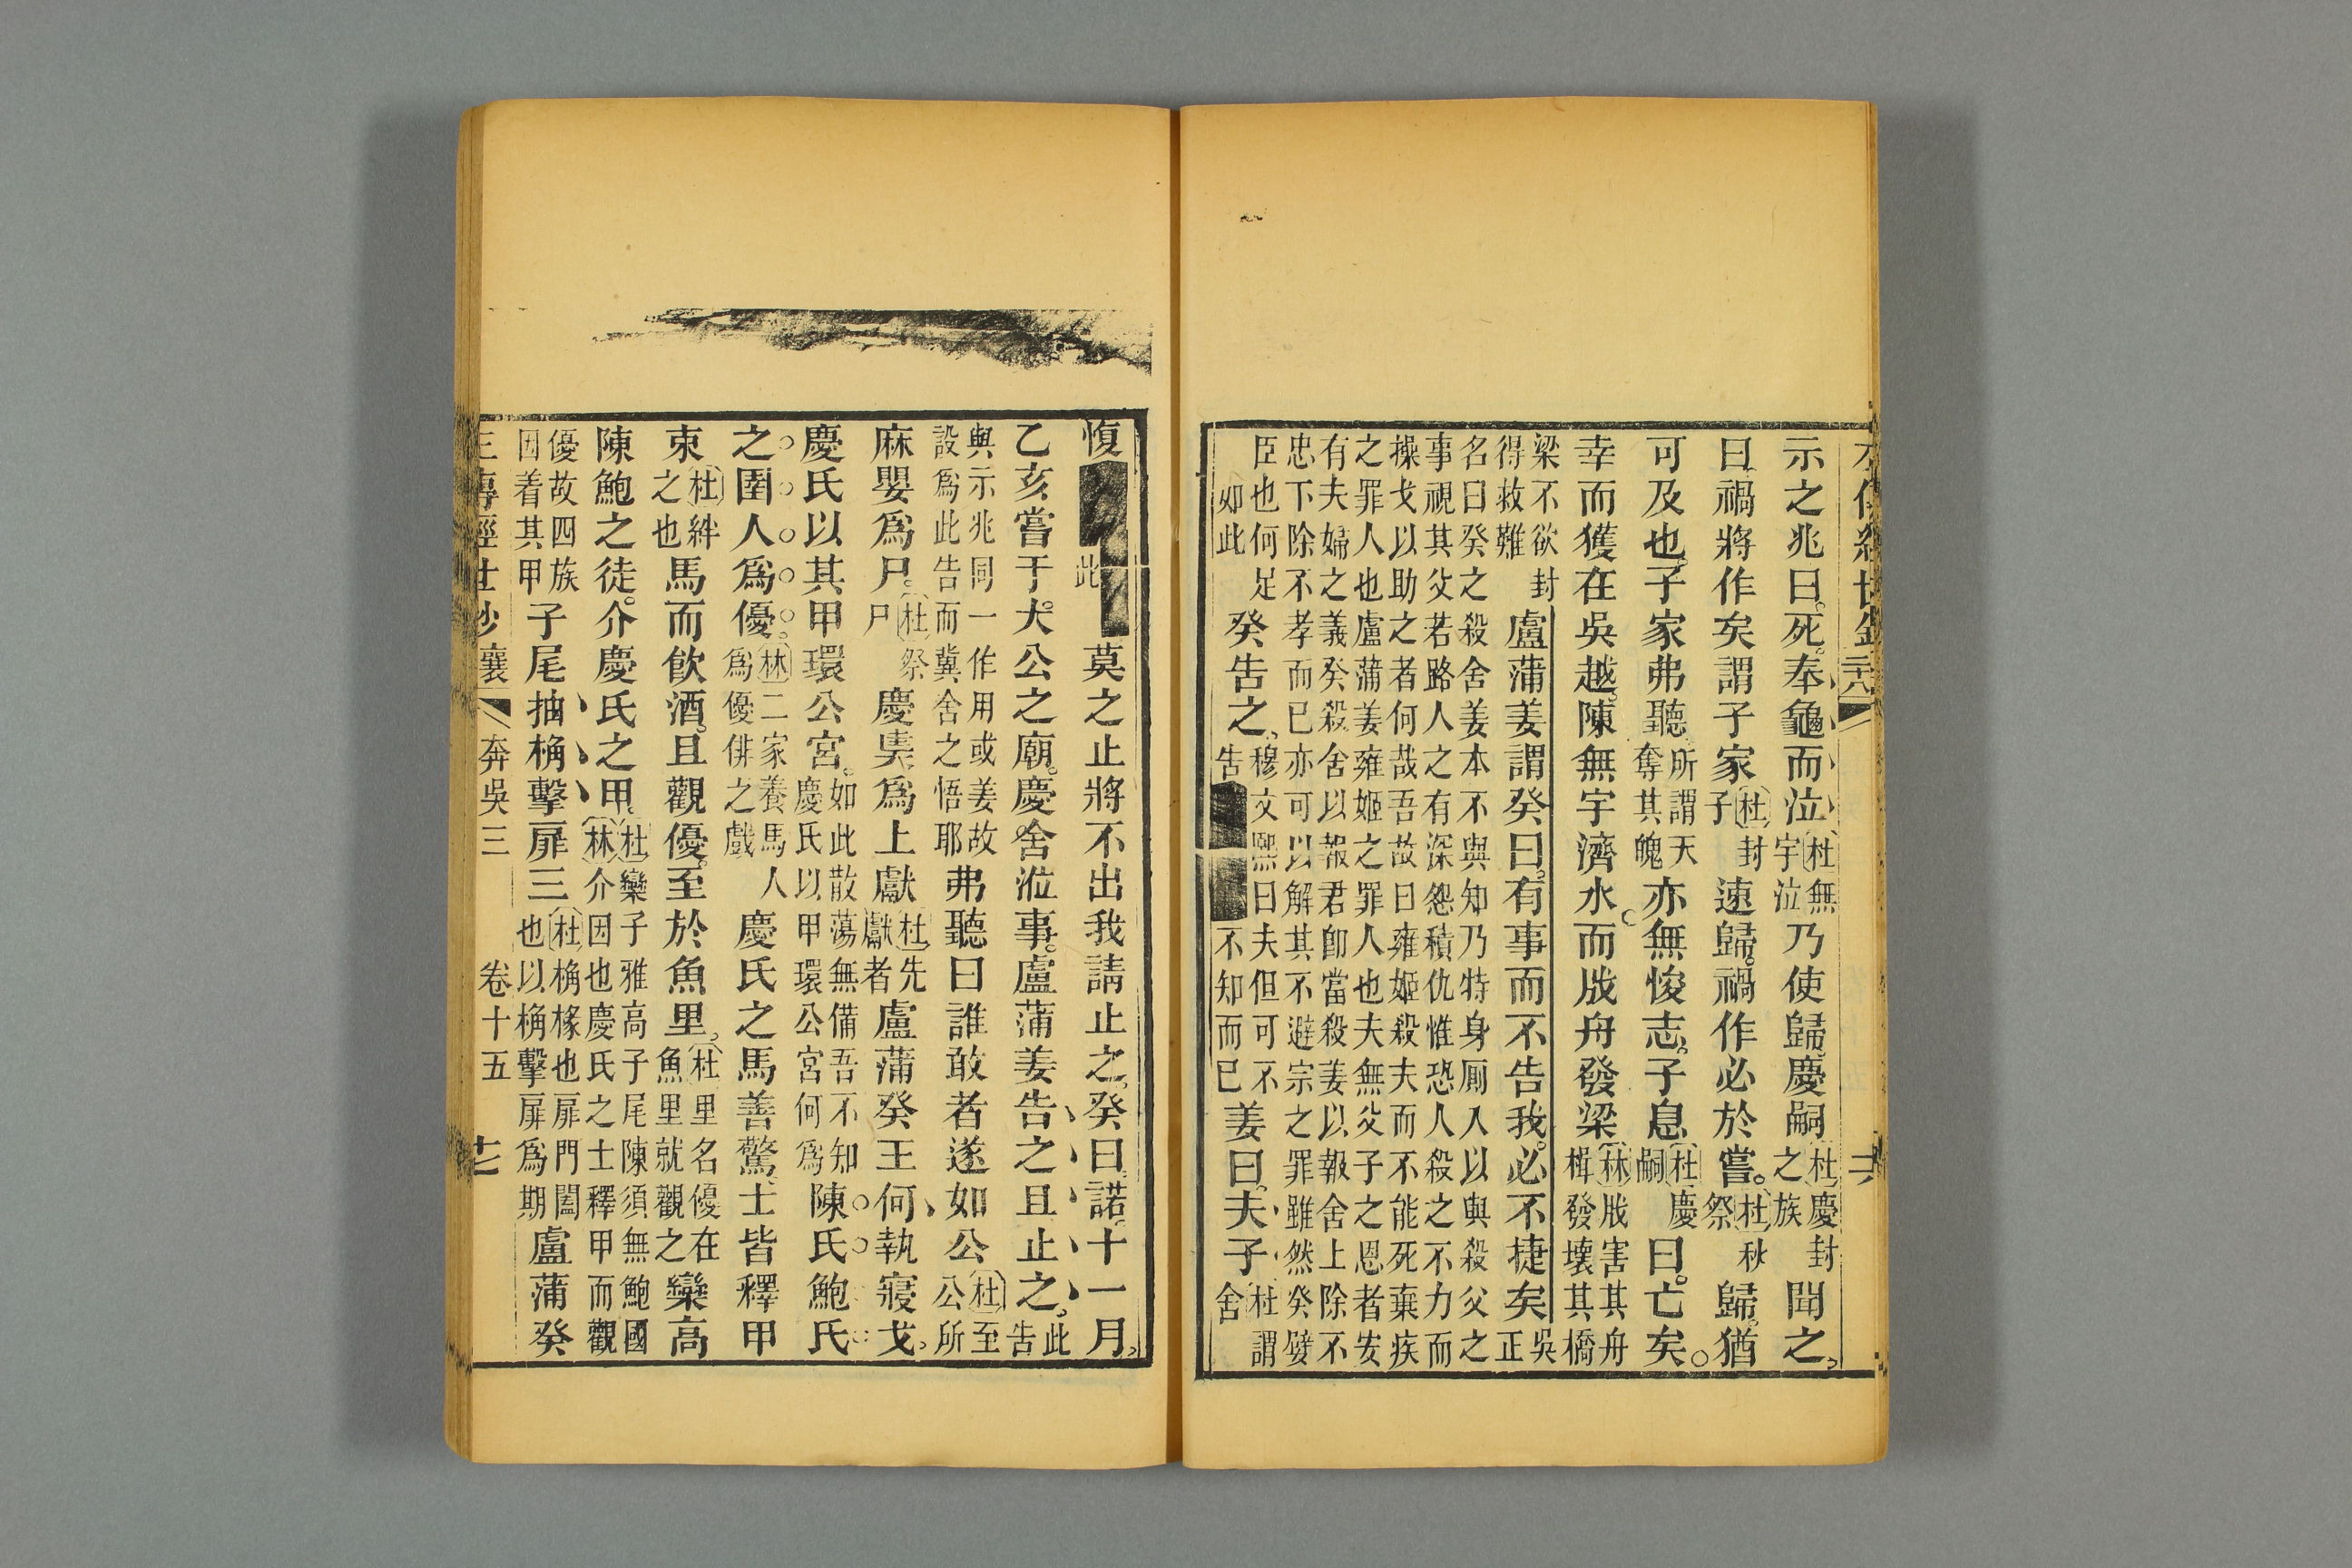 示之兆曰死奉龜而泣杜無宇泣乃使歸慶嗣杜慶封之族聞之
曰禍將作矣謂子家杜封子速歸禍作必於嘗杜秋祭歸猶
可及也子家弗聽所謂天奪其魄亦無悛志子息杜慶嗣曰亡矣
幸而獲在吳越陳無宇濟水而戕舟發梁林戕害其舟楫發壞其橋
梁不欲封得救難盧蒲姜謂癸曰有事而不告我必不捷矣吳正
名曰癸之殺舍姜本不與知乃特身厠人以與殺父之
事視其父若路人之有深怨積仇惟恐人殺之不力而
操戈以助之者何哉吾故曰雍姬殺夫而不能死棄疾
之罪人也盧蒲姜雍姬之罪人也夫無父子之恩者安
有夫婦之義癸殺舍以報君卽當殺姜以報舍上除不
忠下除不孝而已亦可以解其不避宗之罪雖然癸嬖
臣也何足如此癸告之穆文熙曰夫但可不告不知而已姜曰夫子杜謂舍
愎此莫之止將不出我請止之癸曰諾十一月
乙亥嘗于大公之廟慶舍涖事盧蒲姜告之且止之此告
與示兆同一作用或姜故設爲此告而冀舍之悟耶弗聽曰誰敢者遂如公杜至公所
麻嬰爲尸杜祭尸慶奊爲上獻杜先獻者盧蒲癸王何執寢戈
慶氏以其甲環公宮如此散蕩無備吾不知慶氏以甲環公宮何爲陳氏鮑氏
之圉人爲優林二家養馬人爲優俳之戲慶氏之馬善驚士皆釋甲
束杜絆之也馬而飲酒且觀優至於魚里杜里名優在魚里就觀之欒高
陳鮑之徒介慶氏之甲杜欒子雅高子尾陳須無鮑國林介因也慶氏之士釋甲而觀
優故四族因着其甲子尾抽桷擊扉三杜桷椽也扉門闔也以桷擊扉爲期盧蒲癸
襄 奔吳三 卷十五